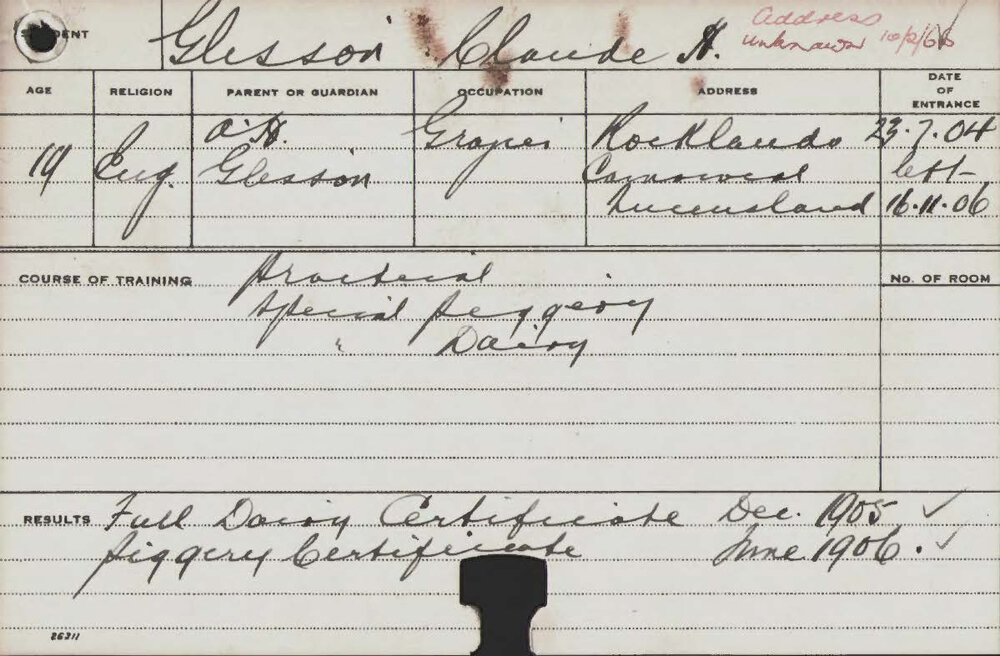 STUDENT Glisson Claude H. Address
unknown 10/2/66
AGE RELIGION PARENT OR GUARDIAN OCCUPATION ADDRESS DATE OF ENTRANCE
19 Eng. A. H. Glisson Grazier Rocklands 23.7.04
Camooweal left
Queensland 16.11.06
COURSE OF TRAINING Practical No. OF ROOM
Special Piggery
" Dairy
RESULTS Full Dairy Certificate Dec. 1905 ✓
Piggery Certificate June 1906. ✓
26311